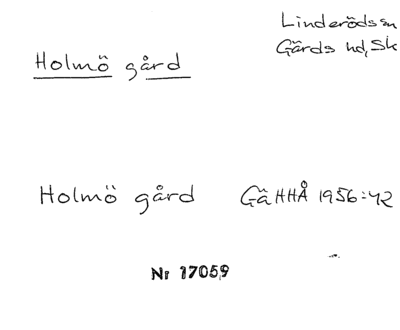 Linderöds sn
Gärds hd, Sk
Holmö gård
Holmö gård GäHHÅ 1956:42
Nr 17059